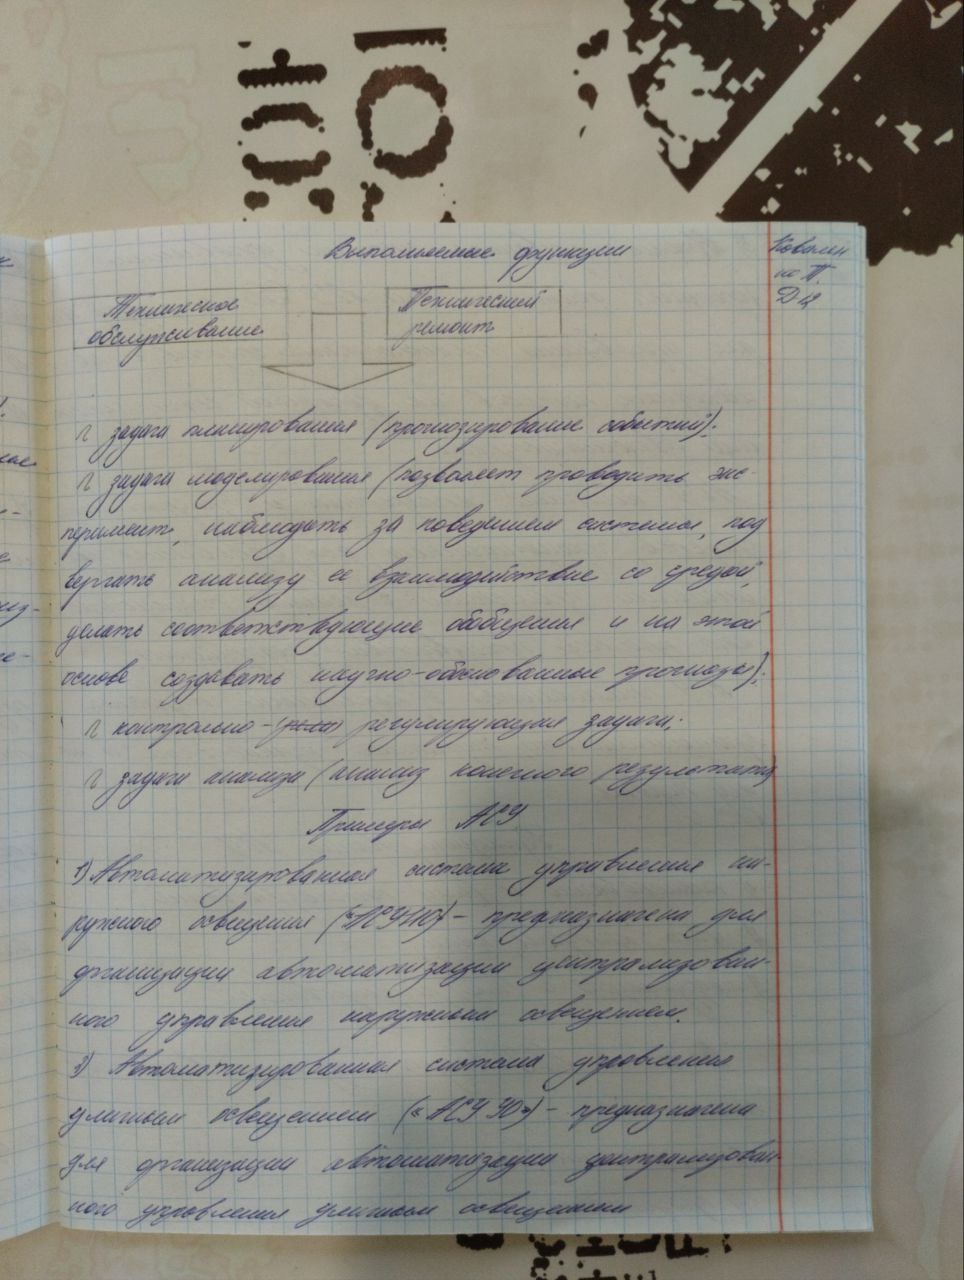 Выполняемые функции
Ковален
ко П.
Д
Техническое
обслуживание
Технический
ремонт
задача планирования (прогнозирование событий);
задача моделирования (позволяет проводить экс-
перимент, наблюдать за поведением системы, под
вергать анализу ее взаимодействие со средой,
делать соответствующие обобщения и на этой
основе создавать научно-обоснованные прогнозы);
контрольно- регулирующая задача;
задача анализа (анализ конечного результата)
Примеры АСУ
1) Автоматизированная система управления на-
ружного освещения ("АСУНО") - предназначена для
организации автоматизации централизован-
ного управления наружным освещением.
2) Автоматизированная система управления
уличным освещением («АСУ УО») - предназначена
для организации автоматизации централизован-
ного управления уличным освещением